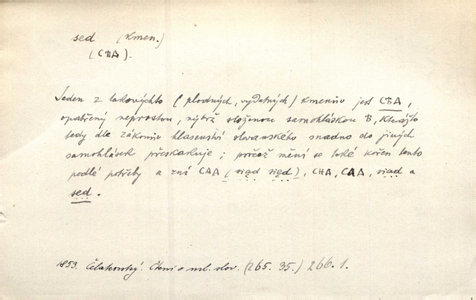 sed (kmen.)
(СѢД).
Jeden z takovýchto (plodných, vydatných) kmenův jest СѢД,
opatřený neprostou, nýbrž složenou samohláskou Ѣ, kterážto
tedy dle zákonův hlasosloví slovanského snadno do jiných
samohlásek přeskakuje; pročež mění se také kořen tento
podlé potřeby a zní САД (siad siąd), СѢД, САД, siad a
sed.
1853. Čelakovský. Čtení o srov. slov. (265. 35.) 266.1.